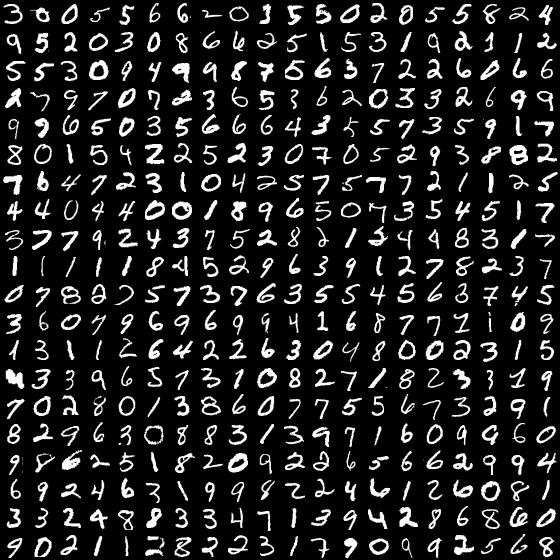 3 0 0 5 5 6 6 2 0 3 5 5 0 2 0 5 5 8 2 4
9 5 2 0 3 0 8 6 6 2 5 1 5 3 1 9 2 1 1 2
5 5 3 0 9 4 9 9 8 7 5 6 3 7 2 2 6 0 6 6
2 7 9 7 0 7 2 3 6 5 3 6 2 0 3 3 2 6 9 9
9 9 6 5 0 3 5 6 6 6 4 3 5 5 7 3 5 9 1 7
8 0 1 5 4 2 2 5 2 3 0 7 0 5 2 9 3 8 8 2
7 6 4 7 2 3 1 0 4 2 5 7 5 7 7 2 1 1 2 5
4 4 0 4 4 0 0 1 8 9 6 5 0 7 3 5 4 5 1 7
3 7 7 9 2 4 3 7 5 2 8 2 1 2 4 4 8 3 1 7
1 1 1 1 1 8 4 5 2 9 6 3 9 1 2 7 8 2 3 7
0 7 8 2 2 5 7 3 7 6 3 5 5 4 5 6 3 7 4 5
3 6 0 7 9 6 9 6 9 9 4 1 6 8 7 7 1 1 0 9
1 3 1 1 2 6 4 2 2 6 3 0 4 8 0 0 2 3 1 5
4 3 3 9 6 5 7 3 1 0 8 2 7 1 8 2 3 3 1 9
7 0 2 8 0 1 3 8 6 0 7 7 5 5 6 7 3 2 9 1
8 2 9 6 3 0 8 8 3 1 3 9 7 1 6 0 9 9 6 0
9 8 2 5 1 8 2 0 9 2 2 6 5 6 6 2 9 9 4
6 9 2 4 6 3 1 9 9 8 2 2 4 6 1 2 6 0 8 1
3 3 2 4 8 8 3 3 4 7 1 3 9 4 2 8 6 8 6 0
9 0 2 1 1 2 8 2 2 3 1 7 9 0 9 9 2 5 6 8